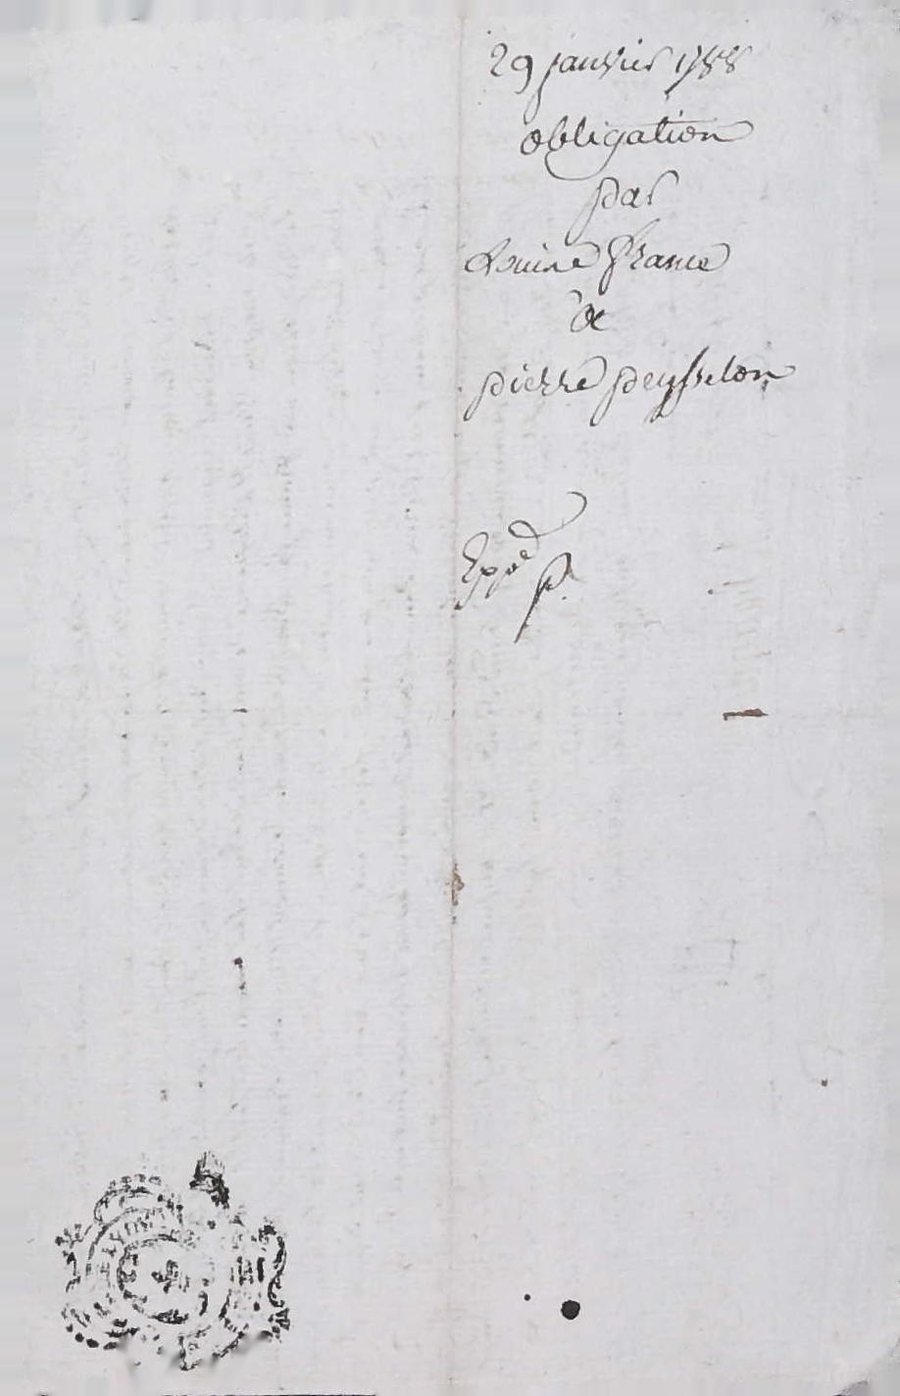 29 janvier 1788
obligation
par
Louise france
à
pierre peysselon
Exp.ée p.